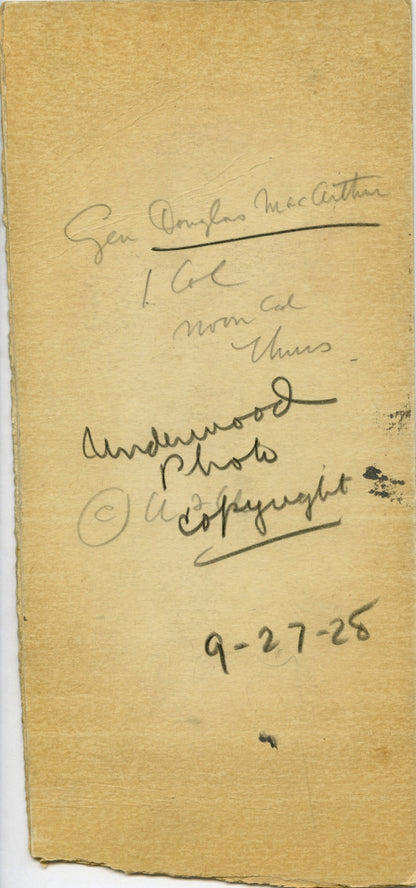 Gen Douglas MacArthur
1 Col
noon Ed
Thurs
Underwood
Photo
© U & U
copyright
9-27-28